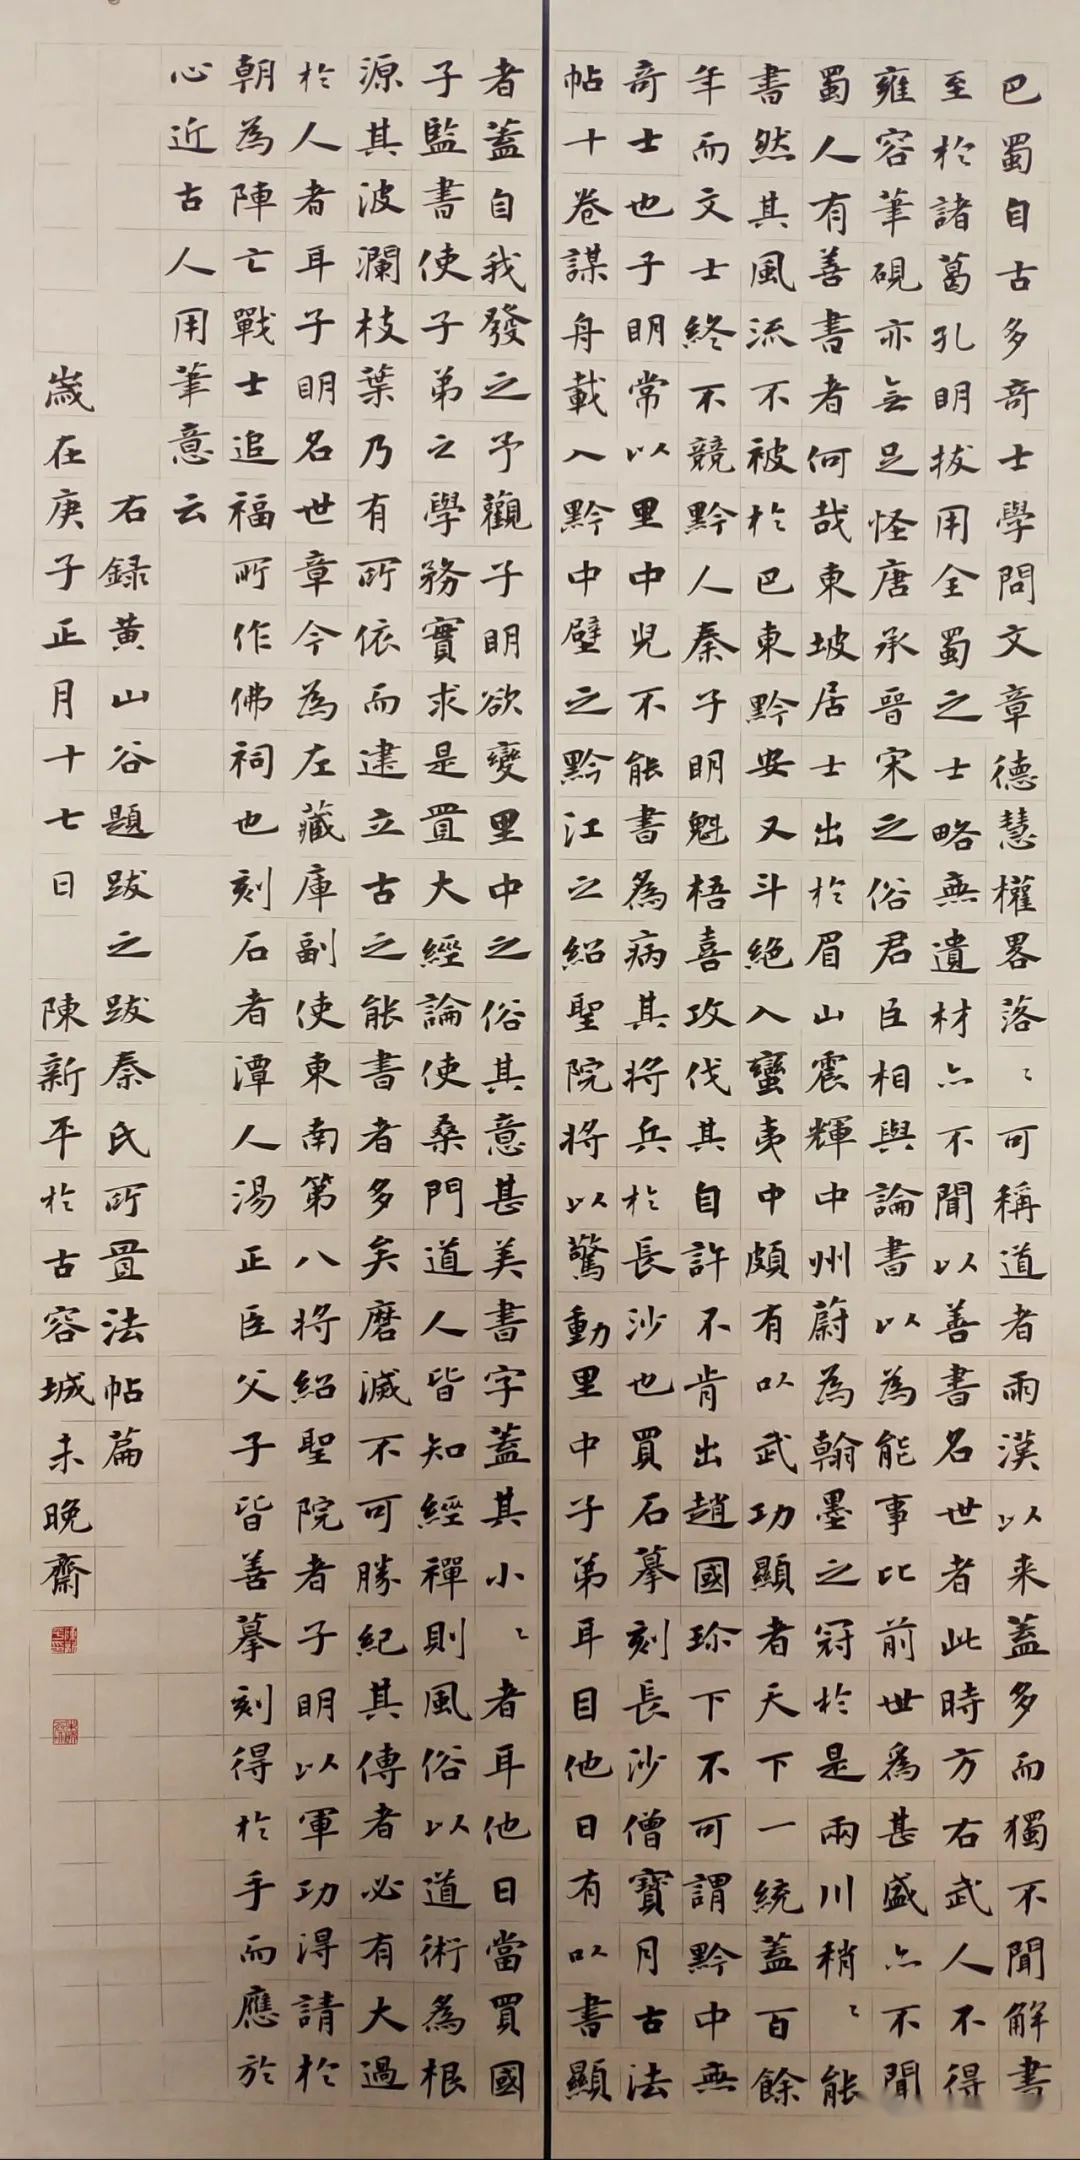 巴蜀自古多奇士學問文章德慧權畧落〻可稱道者兩漢以来蓋多而獨不聞解書
至於諸葛孔明拔用全蜀之士略無遺材亦不聞以善書名世者此時方右武人不得
雍容筆硯亦無足怪唐承晉宋之俗君臣相與論書以為能事比前世為甚盛亦不聞
蜀人有善書者何哉東坡居士出於眉山震輝中州蔚為翰墨之冠於是兩川稍〻能
書然其風流不被於巴東黔安又斗絶入蠻夷中頗有以武功顯者天下一統蓋百餘
年而文士終不競黔人秦子明魁梧喜攻伐其自許不肯出趙國珍下不可謂黔中無
奇士也子明常以里中兒不能書為病其將兵於長沙也買石摹刻長沙僧寶月古法
帖十卷謀舟載入黔中壁之黔江之紹聖院將以驚動里中子弟耳目他日有以書顯
者蓋自我發之予觀子明欲變里中之俗其意甚美書字蓋其小〻者耳他日當買國
子監書使子弟之學務實求是置大經論使桑門道人皆知經禪則風俗以道術為根
源其波瀾枝葉乃有所依而建立古之能書者多矣磨滅不可勝紀其傳者必有大過
於人者耳子明名世章今為左藏庫副使東南第八將紹聖院者子明以軍功得請於
朝為陣亡戰士追福所作佛祠也刻石者潭人湯正臣父子皆善摹刻得於手而應於
心近古人用筆意云
右録黃山谷題跋之跋秦氏所置法帖篇
歲在庚子正月十七日 陳新平於古容城未晚齋